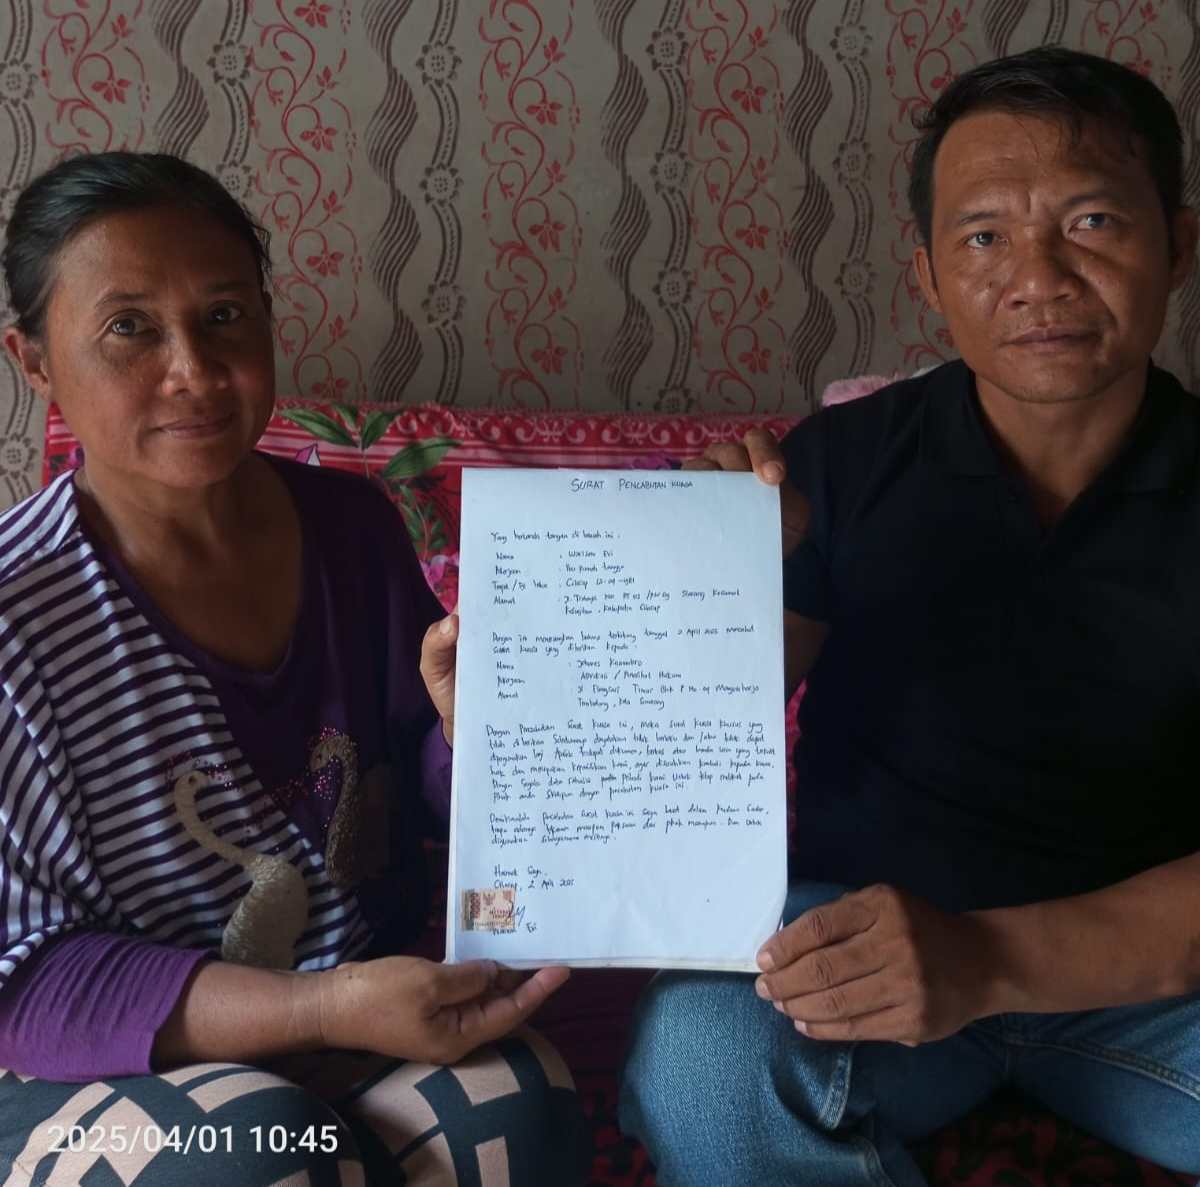 SURAT PENCABUTAN KUASA
Yang bertanda tangan di bawah ini :
Nama : Evi
Pekerjaan : Ibu Rumah tangga
Tempat / Tgl Lahir : Cilacap 12-09-1981
Alamat : Jl. RT 03
Kabupaten Cilacap
Dengan ini tanggal 2 April 2025 Mencabut
Surat Kuasa yang diberikan kepada :
Nama : Johanes
Pekerjaan : Advokat / Penasihat Hukum
Alamat : Jl Timur Blok P No 09
Tembalang, Kota Semarang
Dengan Pencabutan Surat Kuasa ini, Maka Surat Kuasa Khusus yang
telah di berikan dinyatakan tidak berlaku dan /atau tidak dapat
dipergunakan lagi Apabila terdapat dokumen, berkas atau benda lain yang
hak dan kami, agar diserahkan kembali kepada kami,
Dengan Segala data Pribadi kami untuk tetap pada
Pihak anda dengan pencabutan kuasa ini.
Demikianlah pencabutan Surat kuasa ini Saya buat dalam Keadaan Sadar,
tanpa adanya paksaan dari pihak manapun. Dan Untuk
dipergunakan Sebagaimana mestinya.
Hormat Saya,
Cilacap, 2 April 2025
Evi
2025/04/01 10:45